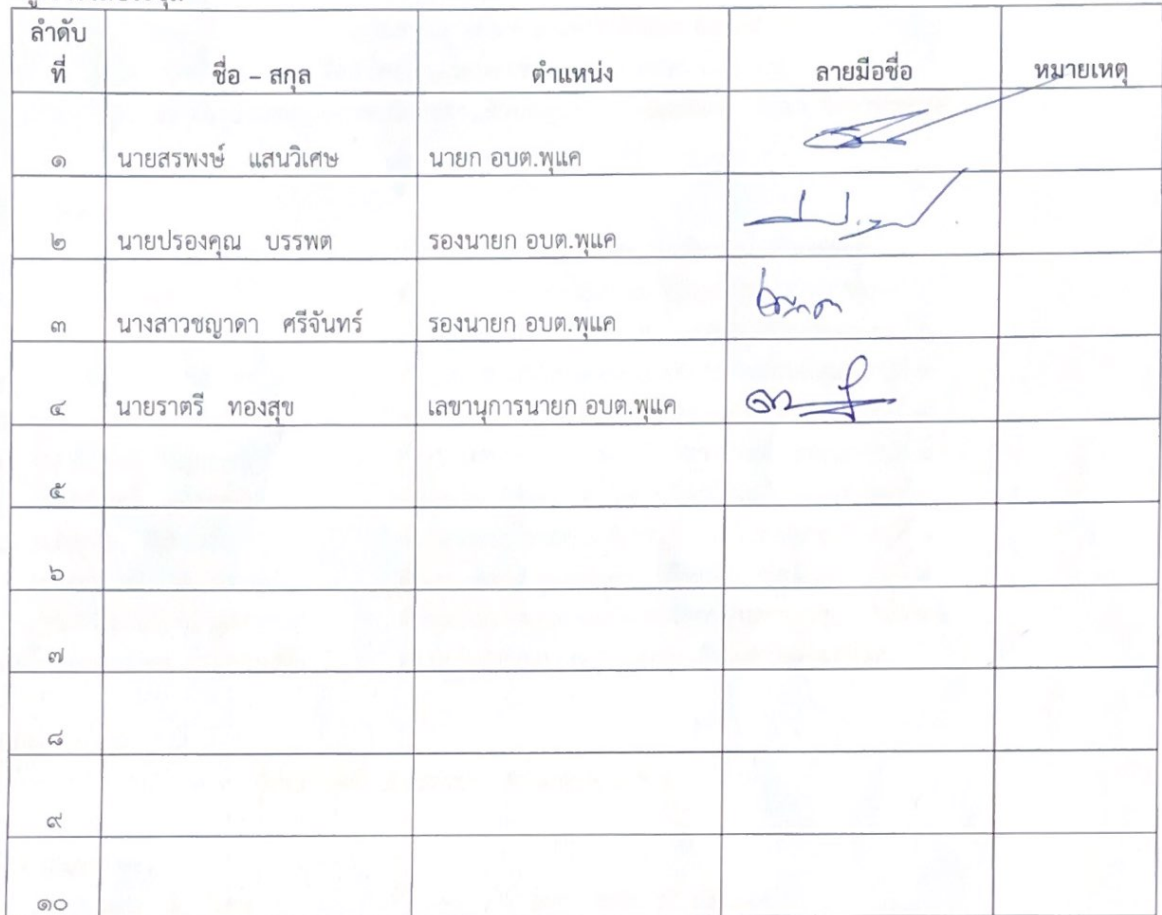 ลำดับ
ที่ ชื่อ – สกุล ตำแหน่ง ลายมือชื่อ หมายเหตุ
๑ นายสรพงษ์ แสนวิเศษ นายก อบต.พุแค
๒ นายปรองคุณ บรรพต รองนายก อบต.พุแค
๓ นางสาวชญาดา ศรีจันทร์ รองนายก อบต.พุแค
๔ นายราตรี ทองสุข เลขานุการนายก อบต.พุแค
๕
๖
๗
๘
๙
๑๐